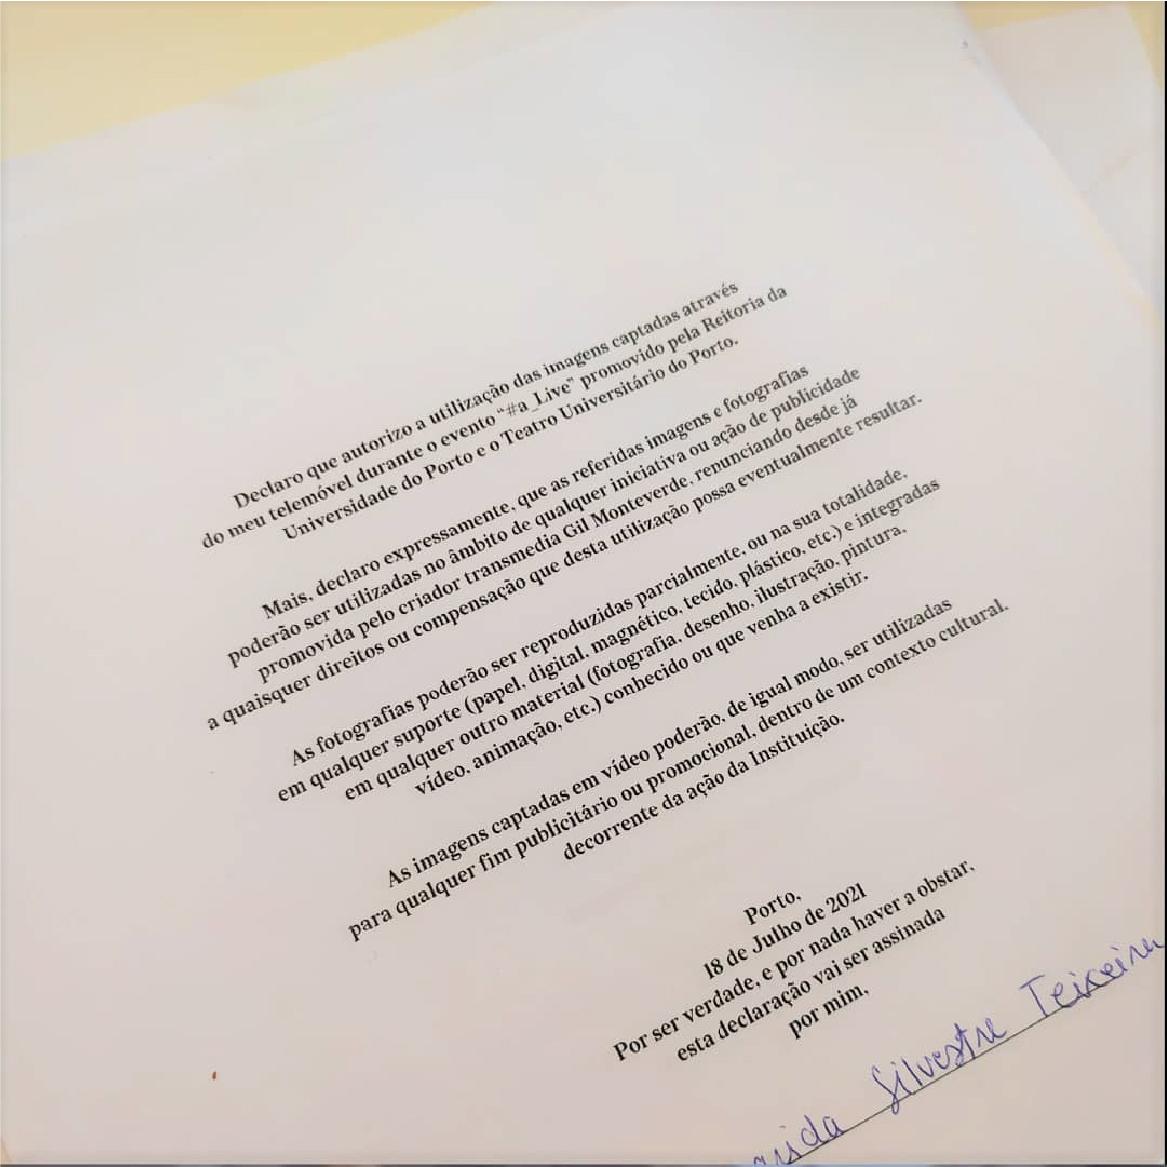 Declaro que autorizo a utilização das imagens captadas através
do meu telemóvel durante o evento "#a_Live" promovido pela Reitoria da
Universidade do Porto e o Teatro Universitário do Porto.
Mais, declaro expressamente, que as referidas imagens e fotografias
poderão ser utilizadas no âmbito de qualquer iniciativa ou ação de publicidade
promovida pelo criador transmedia Gil Monteverde, renunciando desde já
a quaisquer direitos ou compensação que desta utilização possa eventualmente resultar.
As fotografias poderão ser reproduzidas parcialmente, ou na sua totalidade,
em qualquer suporte (papel, digital, magnético, tecido, plástico, etc.) e integradas
em qualquer outro material (fotografia, desenho, ilustração, pintura,
vídeo, animação, etc.) conhecido ou que venha a existir.
As imagens captadas em vídeo poderão, de igual modo, ser utilizadas
para qualquer fim publicitário ou promocional, dentro de um contexto cultural,
decorrente da ação da Instituição.
Porto,
18 de Julho de 2021
Por ser verdade, e por nada haver a obstar,
esta declaração vai ser assinada
por mim,
Silvestre Teixeira